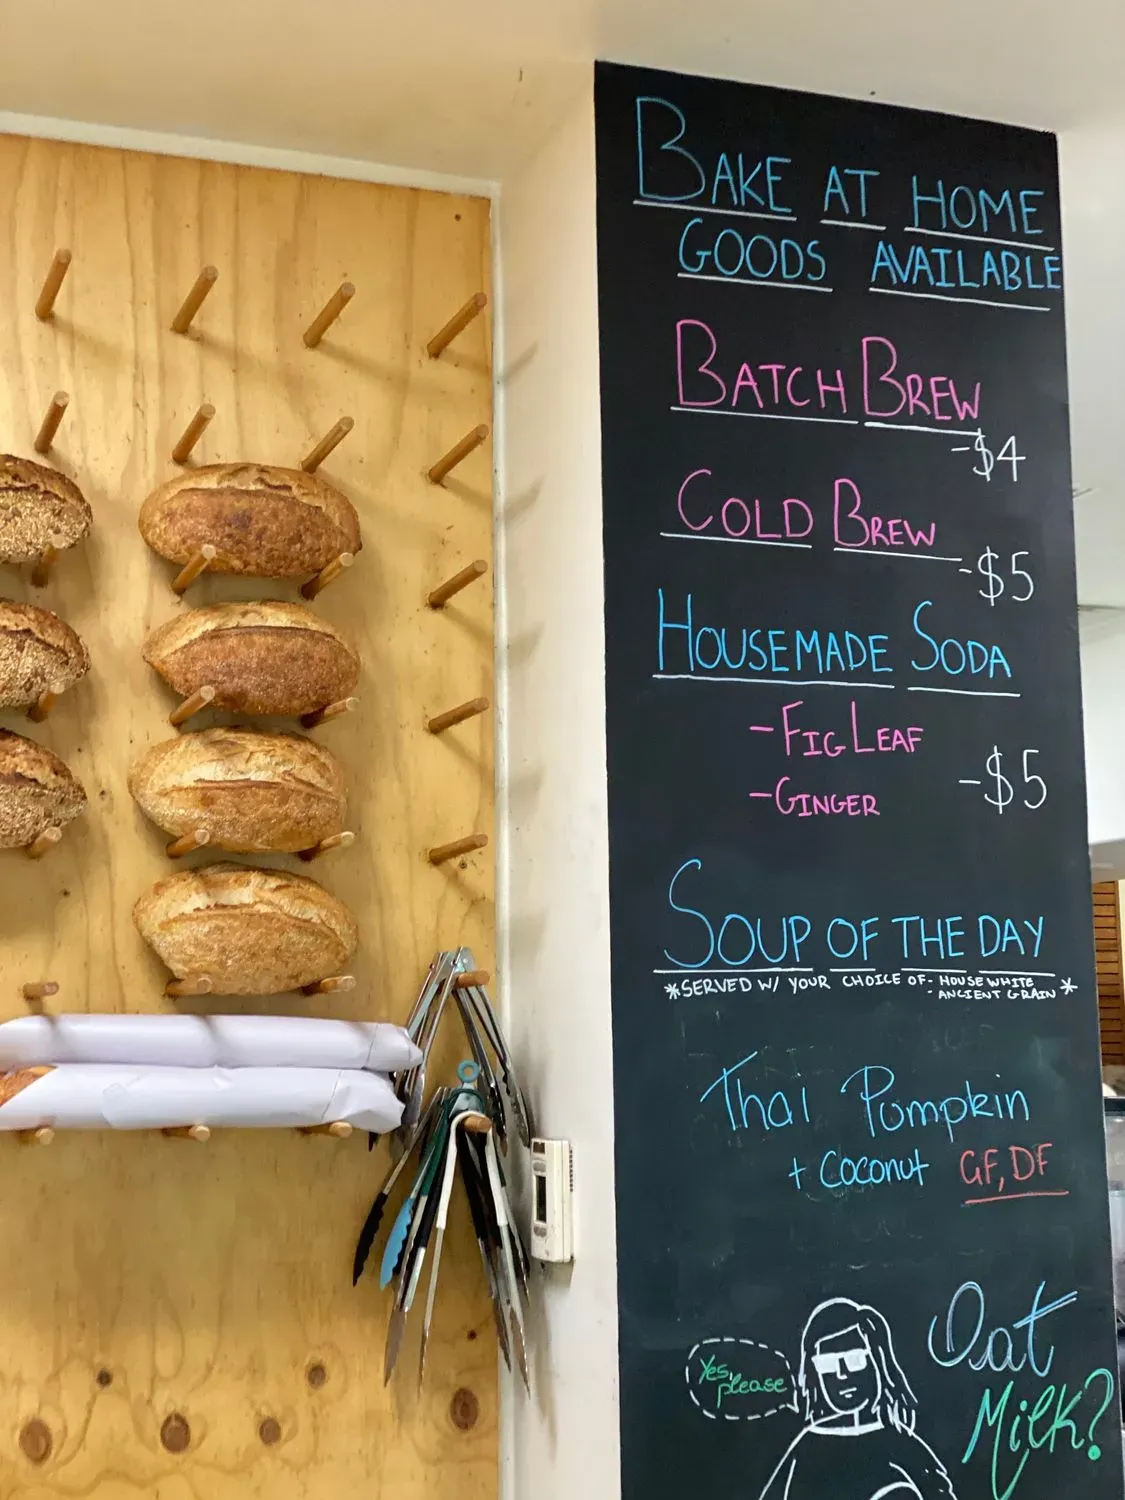 BAKE AT HOME
GOODS AVAILABLE
BATCH BREW
-$4
COLD BREW
-$5
HOUSEMADE SODA
-FIG LEAF
-GINGER
-$5
SOUP OF THE DAY
*SERVED W/ YOUR CHOICE OF- HOUSE WHITE
- ANCIENT GRAIN *
Thai Pumpkin
+ Coconut GF, DF
Oat
Milk?
Yes,
please